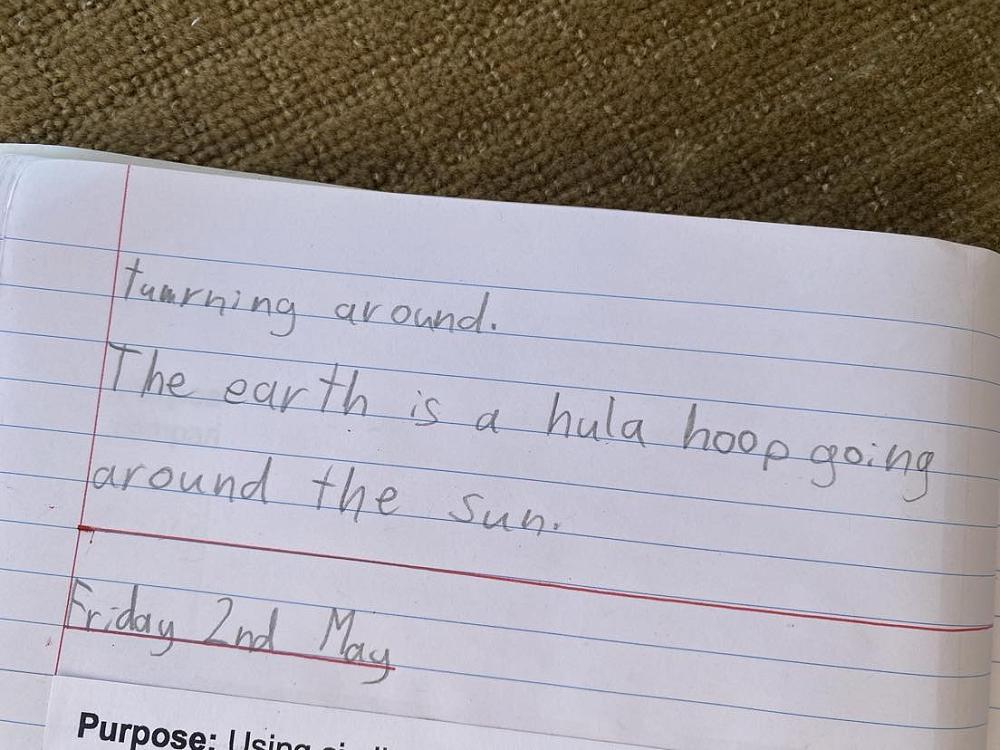 tuurning around.
The earth is a hula hoop going
around the sun.
Friday 2nd May
Purpose: Using